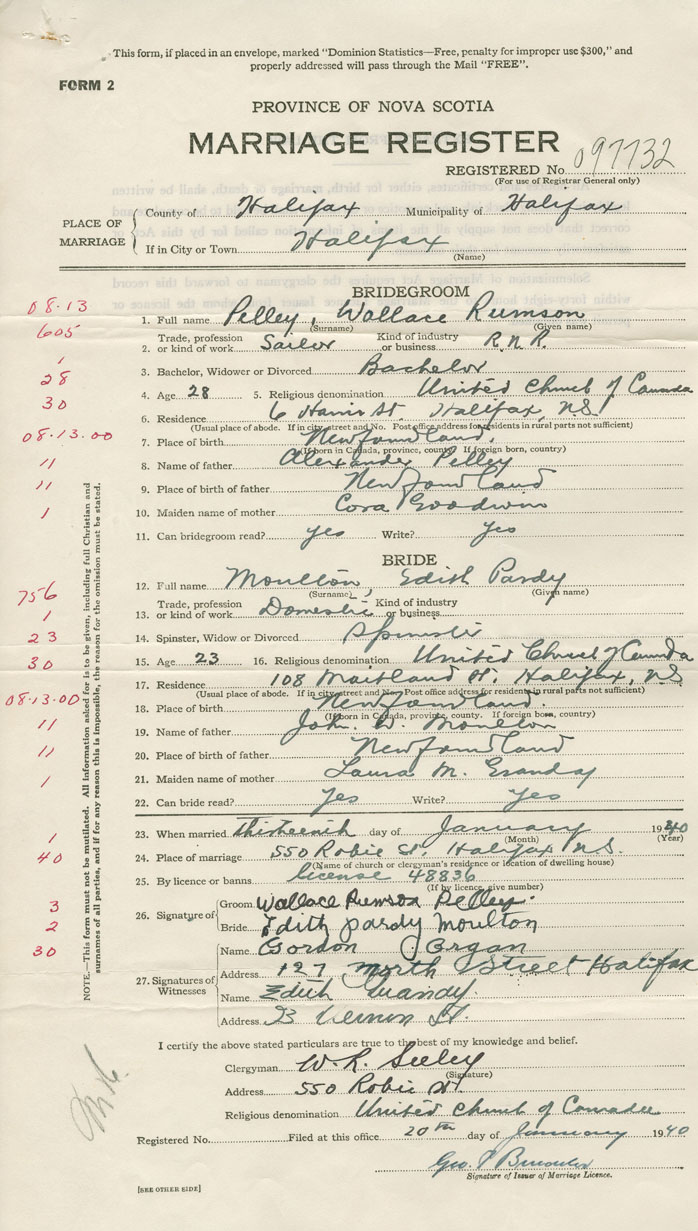 This form, if placed in an envelope, marked "Dominion Statistics—Free, penalty for improper use $300," and
properly addressed will pass through the Mail "FREE".
FORM 2
PROVINCE OF NOVA SCOTIA
MARRIAGE REGISTER
REGISTERED No. 097732
(For use of Registrar General only)
PLACE OF MARRIAGE
County of Halifax Municipality of Halifax
If in City or Town Halifax
(Name)
BRIDEGROOM
08.13
1. Full name Pelley, Wallace Rumson
(Surname) (Given name)
605
2. Trade, profession or kind of work Sailor Kind of industry or business R.N.R.
1
3. Bachelor, Widower or Divorced Bachelor
28
4. Age 28 5. Religious denomination United Church of Canada
30
6. Residence 6 St. Halifax, N.S.
(Usual place of abode. If in city street and No. Post office address for residents in rural parts not sufficient)
08.13.00
7. Place of birth Newfoundland.
(If born in Canada, province, county. If foreign born, country)
11
8. Name of father Alexander Pelley
11
9. Place of birth of father Newfoundland
1
10. Maiden name of mother Cora Goodwin
11. Can bridegroom read? yes Write? yes
BRIDE
756
12. Full name Moulton, Edith Pardy
(Surname) (Given name)
1
13. Trade, profession or kind of work Domestic Kind of industry or business
23
14. Spinster, Widow or Divorced Spinster
30
15. Age 23 16. Religious denomination United Church of Canada
17. Residence 108 Maitland St. Halifax, N.S.
(Usual place of abode. If in city street and No. Post office address for residents in rural parts not sufficient)
08.13.00
18. Place of birth Newfoundland.
(If born in Canada, province, county. If foreign born, country)
11
19. Name of father John W. Moulton
11
20. Place of birth of father Newfoundland
1
21. Maiden name of mother Laura M. Grandy
22. Can bride read? Yes Write? Yes
1
23. When married thirteenth day of January 1940
(Month) (Year)
40
24. Place of marriage 550 Robie St, Halifax N.S.
(Name of church or clergyman's residence or location of dwelling house)
25. By licence or banns license 48836
(If by licence, give number)
3
26. Signature of
Groom Wallace Rumson Pelley
2
Bride Edith pardy Moulton
30
27. Signatures of Witnesses
Name Gordon J Organ
Address 127 North Street Halifax
Name Edith Grandy.
Address Vernon St.
NOTE.—This form must not be mutilated. All information asked for is to be given, including full Christian and
surnames of all parties, and if for any reason this is impossible, the reason for the omission must be stated.
I certify the above stated particulars are true to the best of my knowledge and belief.
Clergyman W. R. Seeley
(Signature)
Address 550 Robie St.
Religious denomination United Church of Canada
Registered No. Filed at this office 20th day of January 1940
Geo.
Signature of Issuer of Marriage Licence.
[SEE OTHER SIDE]